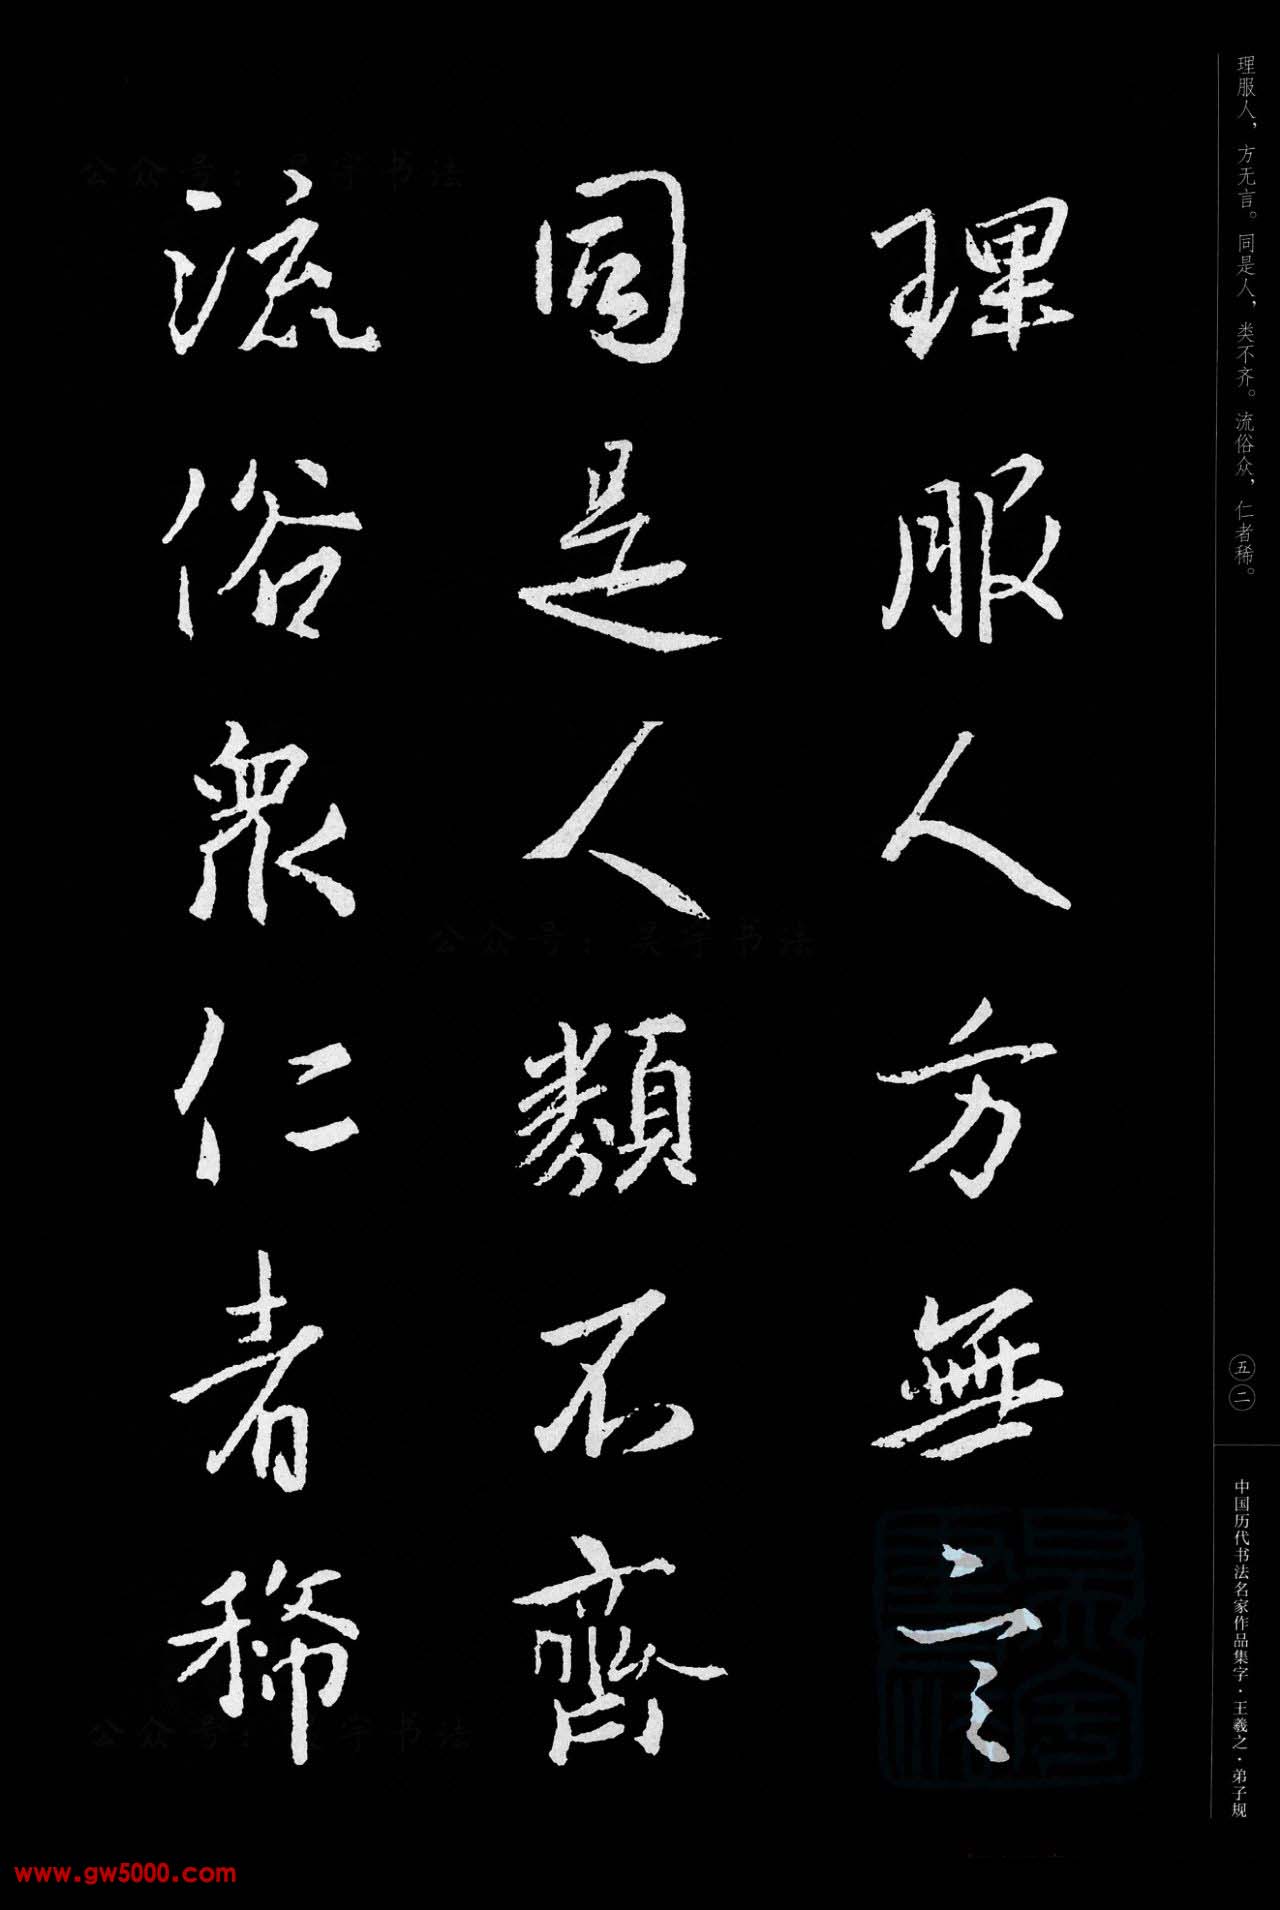 理服人，方无言。同是人，类不齐。流俗众，仁者稀。
理服人方無言
同是人類不齊
流俗衆仁者稀
五二
中国历代书法名家作品集字·王羲之·弟子规
公众号：吴宇书法
公众号：吴宇书法
公众号：吴宇书法
www.gw5000.com